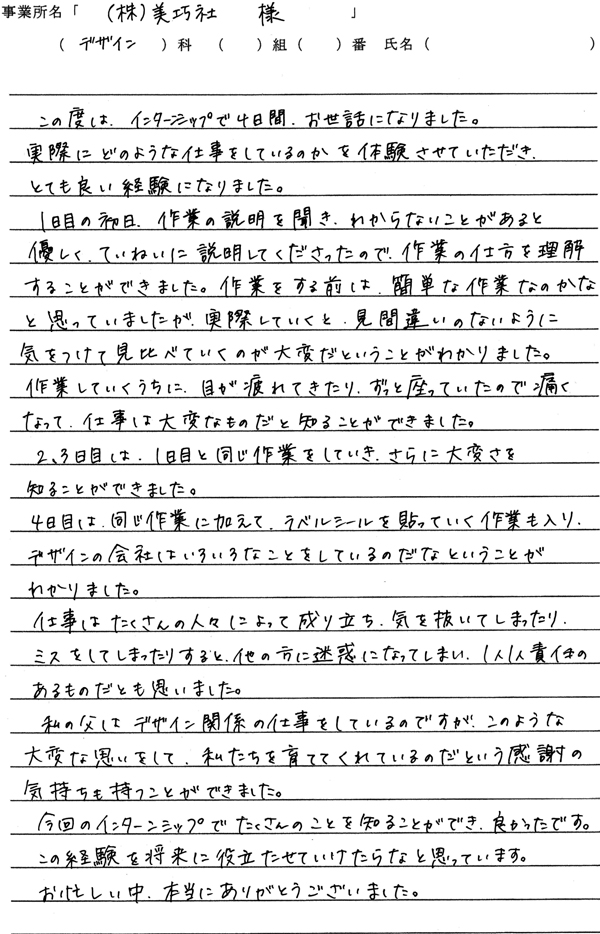 事業所名「 (株)美巧社 様 」
( デザイン )科 ( )組( )番 氏名( )
この度は、インターンシップで4日間、お世話になりました。
実際にどのような仕事をしているのかを体験させていただき、
とても良い経験になりました。
1日目の初日、作業の説明を聞き、わからないことがあると
優しく、ていねいに説明してくださったので、作業の仕方を理解
することができました。作業をする前は、簡単な作業なのかな
と思っていましたが、実際していくと、見間違いのないように
気をつけて見比べていくのが大変だということがわかりました。
作業していくうちに、目が疲れてきたり、ずっと座っていたので痛く
なって、仕事は大変なものだと知ることができました。
2、3日目は、1日目と同じ作業をしていき、さらに大変さを
知ることができました。
4日目は、同じ作業に加えて、ラベルシールを貼っていく作業も入り、
デザインの会社はいろいろなことをしているのだなということが
わかりました。
仕事はたくさんの人々によって成り立ち、気を抜いてしまったり、
ミスをしてしまったりすると、他の方に迷惑になってしまい、1人1人責任の
あるものだとも思いました。
私の父はデザイン関係の仕事をしているのですが、このような
大変な思いをして、私たちを育ててくれているのだという感謝の
気持ちも持つことができました。
今回のインターンシップでたくさんのことを知ることができ、良かったです。
この経験を将来に役立たせていけたらなと思っています。
お忙しい中、本当にありがとうございました。